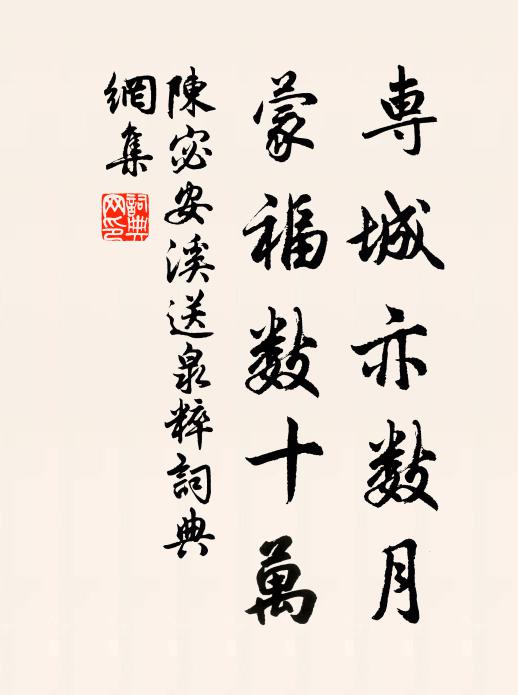 専城亦数月
蒙福数十萬
陳宓安溪送泉粹詞典
網集
詞典
网印